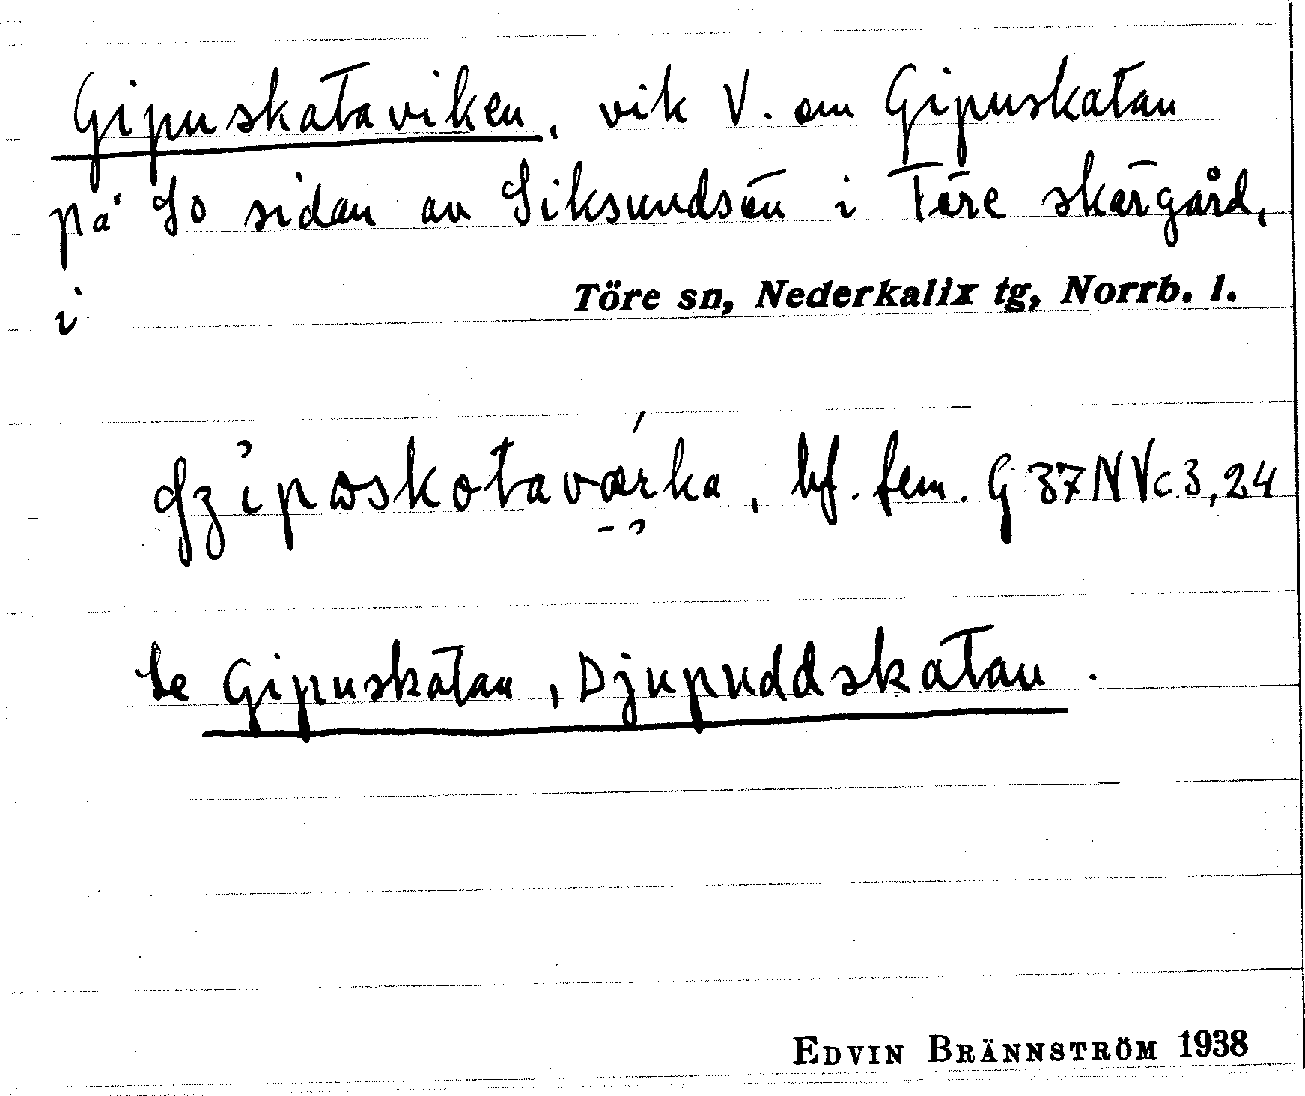 Gipuskataviken, vik V. om Gipuskatan
på So sidan av Siksundsön i Töre skärgård,
i Töre sn, Nederkalix tg, Norrb. l.
bf. fem. G 37 NVc 3,24
Se Gipuskatan, Djupuddskatan.
EDVIN BRÄNNSTRÖM 1938